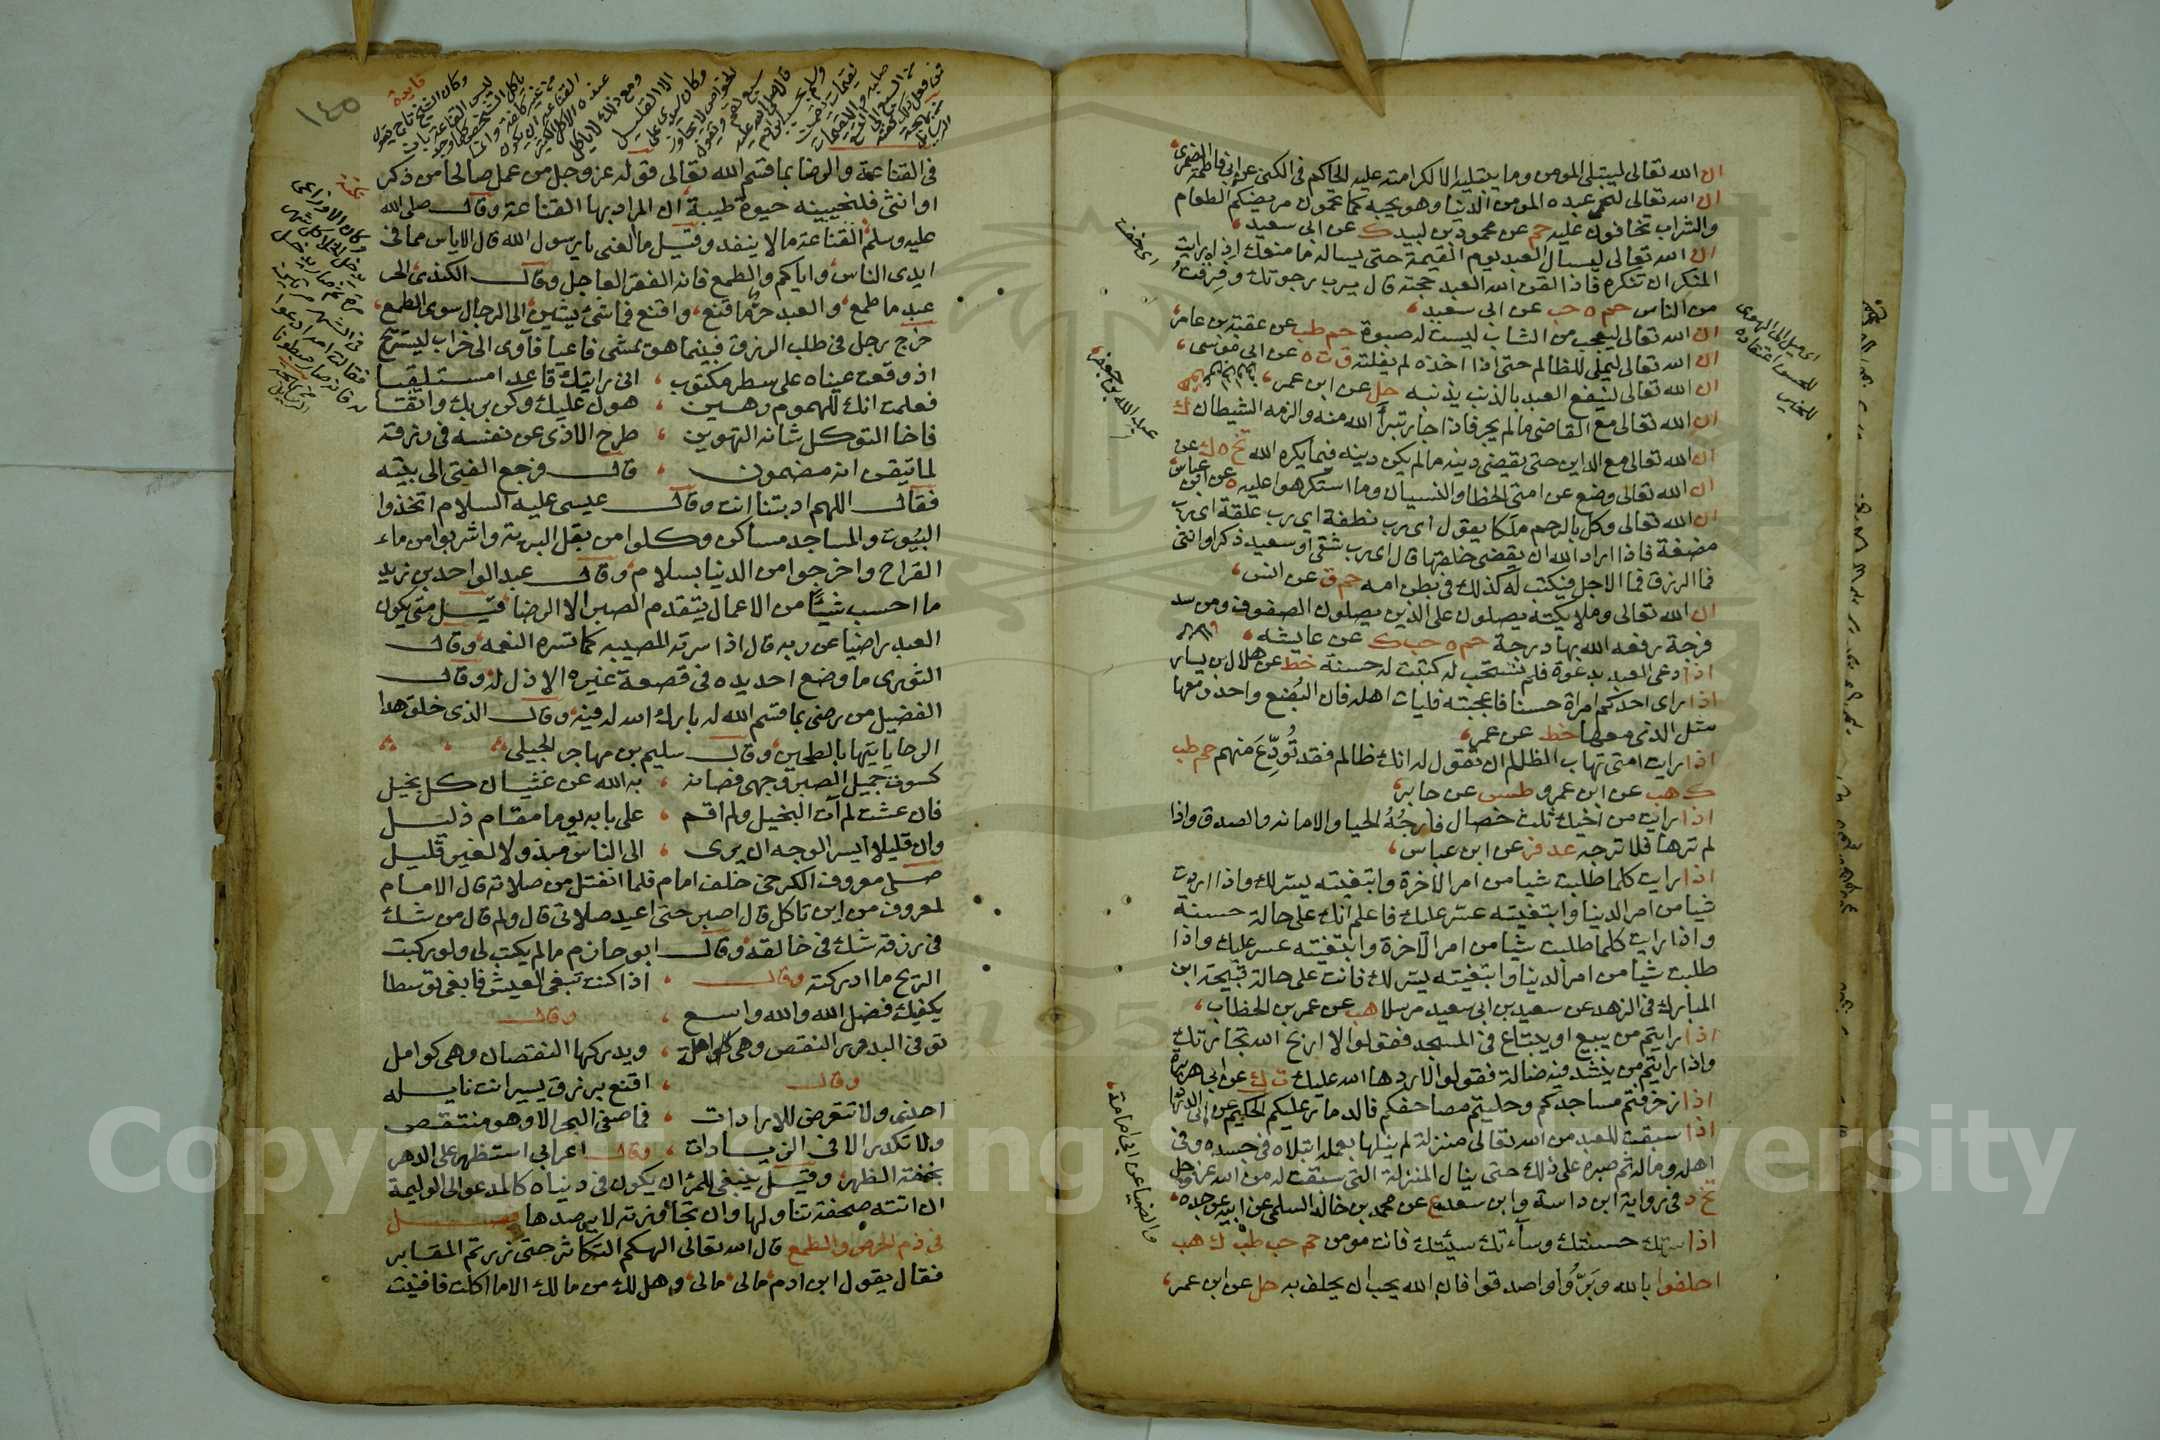 ان الله تعالى ليبتلي المومن وما يبتليه الا لكرامته عليه الحاكم في الكنى عن ابي فاطمة الضمري
ان الله تعالى ليحمي عبده المومن الدنيا وهو يحبه كما تحمون مريضكم الطعام
والشراب تخافون عليه حم عن محمود بن لبيد ك عن ابي سعيد
ان الله تعالى ليسال العبد يوم القيمة حتى يساله ما منعك اذ رايت
المنكر ان تنكره فاذا لقن الله العبد حجته قال يرب رجوتك وفرقت
من الناس حم ه حب عن ابي سعيد
ان الله تعالى ليعجب من الشاب ليست له صبوة حم طب عن عقبة بن عامر
ان الله تعالى ليملي للظالم حتى اذا اخذه لم يفلته ق ت ه عن ابي موسى
ان الله تعالى لينفع العبد بالذنب يذنبه حل عن ابن عمر
ان الله تعالى مع القاضي ما لم يجر فاذا جار تبرأ الله منه والزمه الشيطان ك
ان الله تعالى مع الداين حتى يقضي دينه ما لم يكن دينه فيما يكره الله تخ ه ك عن
ان الله تعالى وضع عن امتي الخطا والنسيان وما استكرهوا عليه ه عن ابن عباس
ان الله تعالى وكل بالرحم ملكا يقول اي رب نطفة اي رب علقة اي رب
مضغة فاذا اراد الله ان يقضي خلقها قال اي رب شقي او سعيد ذكر او انثى
فما الرزق فما الاجل فيكتب له كذلك في بطن امه حم ق عن انس
ان الله تعالى وملايكته يصلون على الذين يصلون الصفوف ومن سد
فرجة رفعه الله بها درجة حم ه حب ك عن عايشه
اذا دعى العبد بدعوة فلم تستجب له كتبت له حسنة خط عن هلال بن يسار
اذا راى احدكم امراة حسنا فاعجبته فليات اهله فان البُضع واحد ومعها
مثل الذي معها خط عن عمر
اذا رايت امتي تهاب الظالم ان تقول له انك ظالم فقد تُوُدِّعَ منهم حم طب
ك هب عن ابن عمرو طس عن جابر
اذا رايت من اخيك ثلث خصال فارجُهُ الحيا والامانه والصدق واذا
لم ترها فلا ترجه عد فر عن ابن عباس
اذا رايت كلما طلبت شيا من امر الاخرة وابتغيته يسر لك واذا اردت
شيا من امر الدنيا وابتغيته عسر عليك فاعلم انك على حالة حسنة
واذا رايت كلما طلبت شيا من امر الآخرة وابتغيته عسر عليك واذا
طلبت شيا من امر الدنيا وابتغيته يسر لك فانت على حالة قبيحة ابن
المبارك في الزهد عن سعيد بن ابي سعيد مرسلا هب عن عمر بن الخطاب
اذا رايتم من يبيع او يبتاع في المسجد فقولوا لا اربح الله تجارتك
واذا رايتم من ينشد فيه ضالة فقولوا لا ردها الله عليك ت ك عن ابي هريرة
اذا زخرفتم مساجدكم وحليتم مصاحفكم فالدمار عليكم الحكيم عن ابي الدرداء
اذا سبقت للعبد من الله تعالى منزلة لم ينلها بعمله ابتلاه في جسده وفي
اهله وماله ثم صبره على ذلك حتى ينال المنزلة التي سبقت له من الله عز وجل
تخ د في رواية ابن داسة وابن سعد ع عن محمد بن خالد السلمي عن ابيه عن جده
اذا سرتك حسنتك وساءتك سيئتك فانت مومن حم حب طب ك هب
احلفوا بالله وبَرُّوا واصدقوا فان الله يحب ان يحلف به حل عن ابن عمر
اي خفت
عبد الله بن جعفر
والضيا عن ابي امامة
١٤٥
فايدة
في القناعة والرضا بما قسم الله تعالى قوله عز وجل من عمل صالحا من ذكر
او انثى فلنحيينه حيوة طيبة ان المراد بها القناعة وقال صلى الله
عليه وسلم القناعة مال لا ينفد وقيل ما الغنى يا رسول الله قال الاياس مما في
ايدي الناس واياكم والطمع فانه الفقر العاجل وقال الكندي الحر
عبد ما طمع والعبد حر ما قنع واقنع فما شيء يشين الى الرجال سوى الطمع
خرج رجل في طلب الرزق فبينما هو يمشي فاعيا فآوى الى خراب ليستريح
اذ وقعت عيناه على سطر مكتوب ، اني رايتك قاعدا مستلقيا
فعلمت انك للهموم رهين ، هون عليك وكن بربك واثقا
فاخا التوكل شانه التهوين ، طرح الاذى عن نفسه في رزقه
لما تيقن انه مضمون ، قال فرجع الفتى الى بيته
فقال اللهم ادبتنا انت وقال عيسى عليه السلام اتخذوا
البيوت والمساجد مساكن وكلوا من بقل البرية واشربوا من ماء
القراح واخرجوا من الدنيا بسلام وقال عبد الواحد بن زيد
ما احسب شيئا من الاعمال يتقدم الصبر الا الرضا قيل متى يكون
العبد راضيا عن ربه قال اذا سرته المصيبه كما تسره النعمه وقال
الثوري ما وضع احد يده في قصعة غيره الا ذل له وقال
الفضيل من رضي بما قسم الله له بارك الله له فيه وقال الذي خلق هذا
الرحا ياتيها بالطحين وقال سليم بن مهاجر الجيلي
كسوت جميل الصبر وجهي فصانه ، به الله عن غشيان كل بخيل
فان عشت لم آت البخيل ولم اقم ، على بابه يوما مقام ذليل
وان قليلا ايسر الوجه ان يرى ، الى الناس مبذولا لغير قليل
صلى معروف الكرخي خلف امام فلما انفتل من صلاته قال الامام
لمعروف من اين تاكل قال اصبر حتى اعيد صلاتي قال ولم قال من شك
في رزقه شك في خالقه وقال ابو حازم ما لم يكتب لي ولو ركبت
الريح ما ادركته وقال ، اذا كنت تبغي العيش فابغي توسطا
يكفيك فضل الله والله واسع ، وقال
توقى البدور النقص وهي اهلة ، ويدركها النقصان وهي كوامل
وقال ، اقنع برزق يسير انت نايله
احذر ولا تتعرض للارادات ، فما صفى البحر الا وهو منتقص
ولا تكدر الا في الزيادات ، وقال اعرابي استظهر على الدهر
بخفة الظهر وقيل ينبغي للمرء ان يكون في دنياه كالمدعو الى الوليمة
ان اتته صحفة تناولها وان تجاوزته لا يرصدها فصل
في ذم الحرص والطمع قال الله تعالى الهكم التكاثر حتى زرتم المقابر
فقال يقول ابن ادم مالي مالي وهل لك من مالك الا ما اكلت فافنيت
Copyright © King Saud University
1957